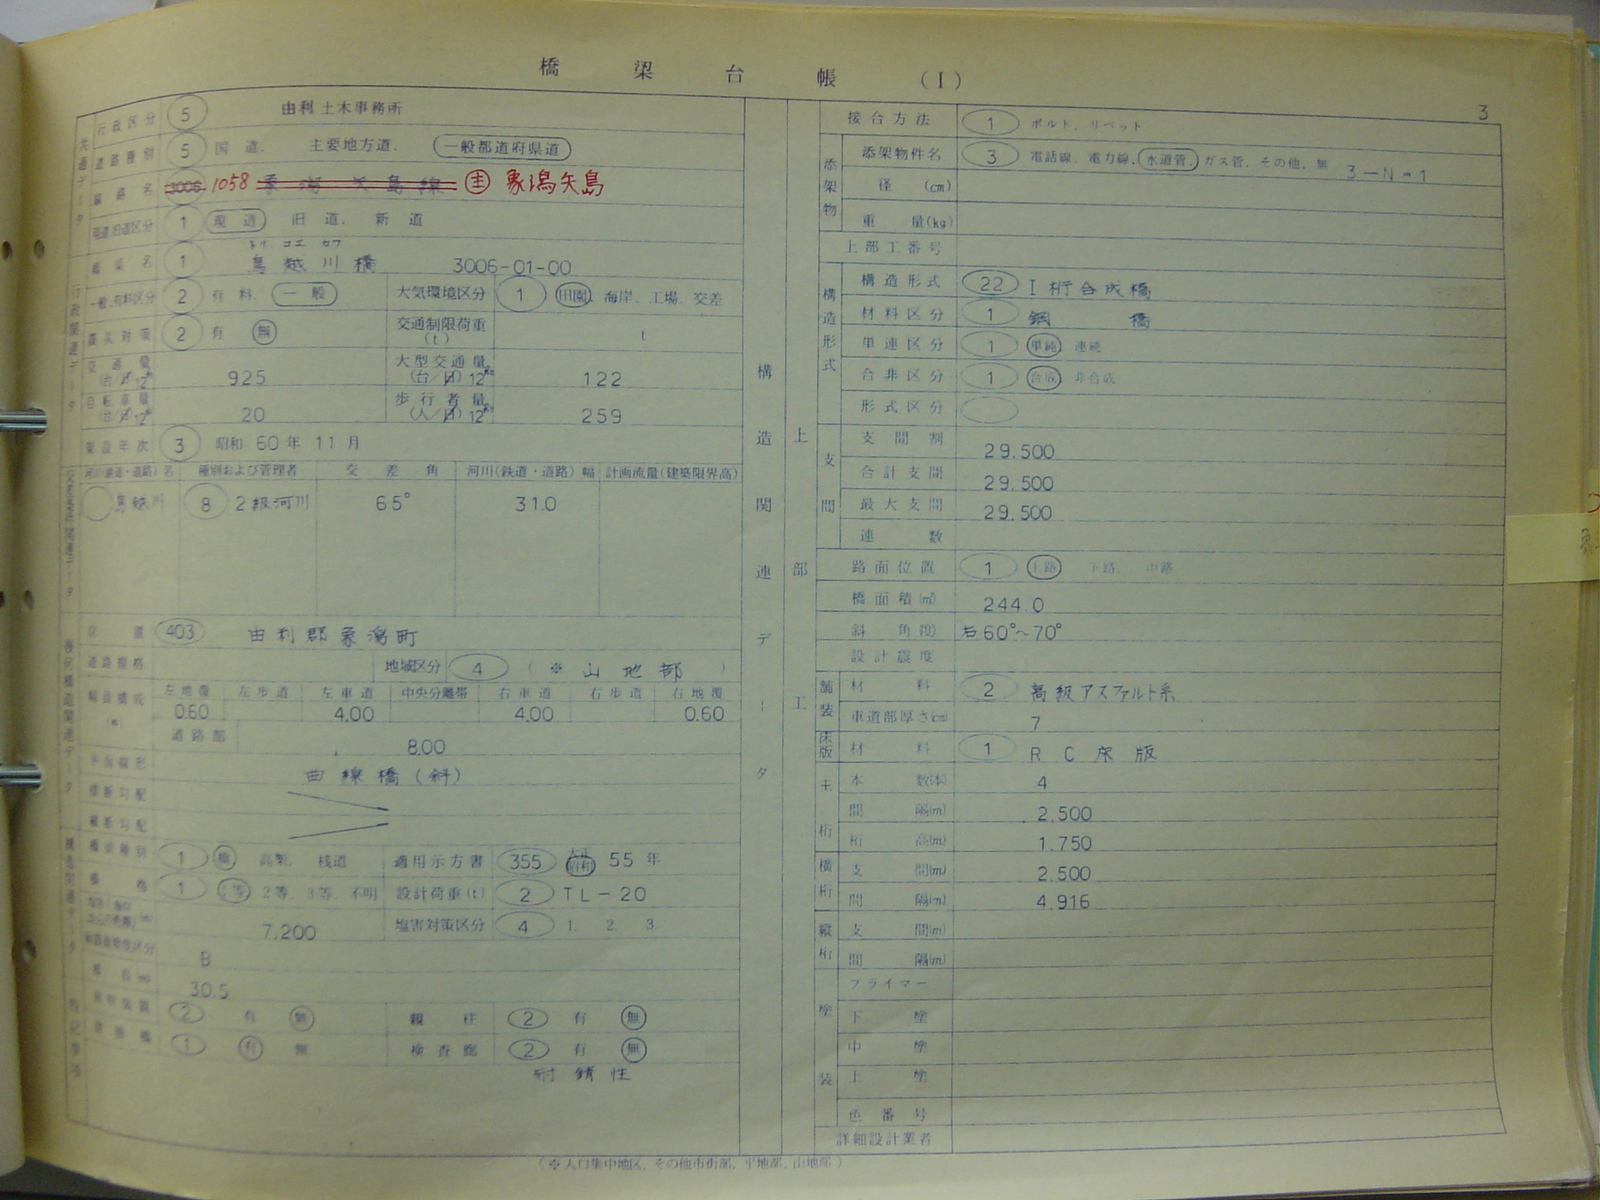 橋 梁 台 帳 (Ⅰ)
3
行政区分 5 由利土木事務所
道路種別 5 国道、 主要地方道、 一般都道府県道
路線名 3006 1058 象潟矢島線 主 象潟矢島
現道、旧道区分 1 現道 旧道、 新道
トリ コエ カワ
橋梁名 1 鳥越川橋 3006-01-00
一般、有料区分 2 有料、 一般 大気環境区分 1 田園、海岸、工場、交差
震災対策 2 有 無 交通制限荷重(t) t
交通量(台/日)12 925 大型交通量(台/日)12 122
自転車量(台/日)12 20 歩行者量(人/日)12 259
架設年次 3 昭和 60年 11月
河川(鉄道・道路)名 種別および管理者 交差角 河川(鉄道・道路)幅 計画流量(建築限界高)
鳥越川 8 2級河川 65° 31.0
位置 403 由利郡象潟町
道路規格 地域区分 4 (※ 山地部 )
幅員構成 左地覆 左歩道 左車道 中央分離帯 右車道 右歩道 右地覆
0.60 4.00 4.00 0.60
道路部 8.00
平面線形 曲線橋(斜)
横断勾配
縦断勾配
橋梁種別 1 橋 高架、 桟道 適用示方書 355 大正 昭和 55年
橋格 1 1等 2等、3等、不明 設計荷重(t) 2 TL-20
7.200 塩害対策区分 4 1. 2. 3.
B
橋長 30.5
2 有 無 親柱 2 有 無
1 有 無 検査廊 2 有 無
耐錆性
特記事項
構造関連データ
上部工
接合方法 1 ボルト、リベット
添架物
添架物件名 3 電話線、電力線、水道管、ガス管、その他、無 3-N-1
径 (cm)
重量(kg)
上部工番号
構造形式
構造形式 22 I桁合成橋
材料区分 1 鋼橋
単連区分 1 単純、連続
合非区分 1 合成、非合成
形式区分
支間
支間割 29.500
合計支間 29.500
最大支間 29.500
連数
路面位置 1 上路、 下路、 中路
橋面積(㎡) 244.0
斜角(度) 右60°~70°
設計震度
舗装 材料 2 高級アスファルト系
車道部厚さ(cm) 7
床版 材料 1 RC床版
主桁
本数(本) 4
間隔(m) 2.500
桁高(m) 1.750
横桁 支間(m) 2.500
間隔(m) 4.916
縦桁 支間(m)
間隔(m)
塗装
プライマー
下塗
中塗
上塗
色番号
詳細設計業者
(※人口集中地区、その他市街部、平地部、山地部)